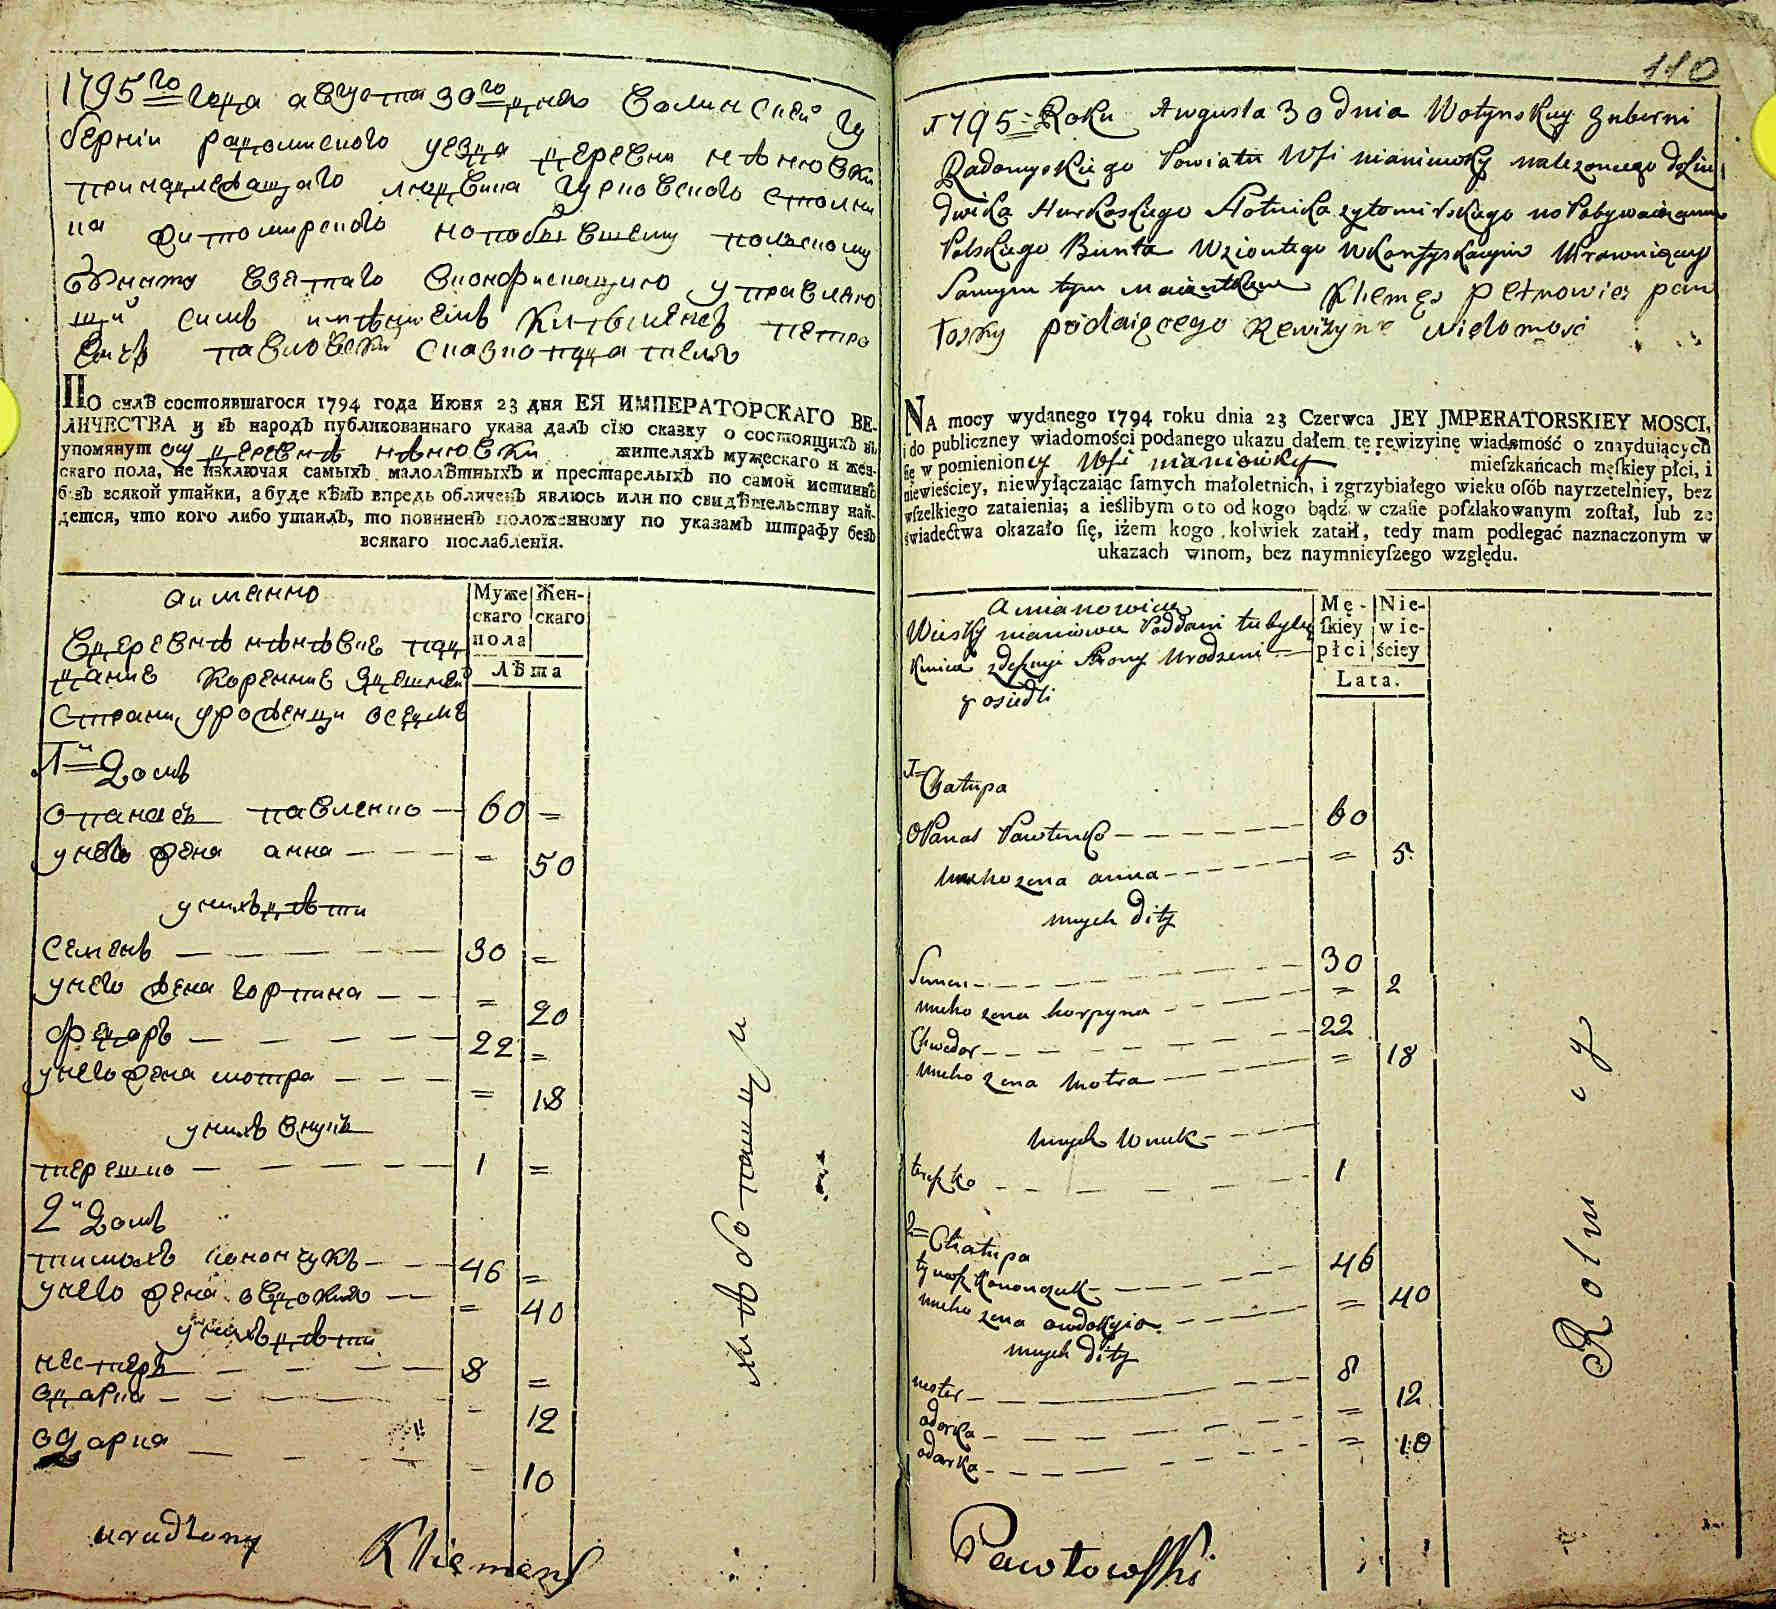 1795го года августа 30го дня волинской гу
берніи радомиского уезда деревни нѣнювки
принадлежащаго людвика гурковского столни
ка житомирского польскому
взятаго вконфискацию управляю
щй симъ имѣниемъ петро
вичъ павловский
ПО силѣ состоявшагося 1794 года Июня 23 дня ЕЯ ИМПЕРАТОРСКАГО ВЕ-
ЛИЧЕСТВА и въ народъ публикованнаго указа далъ сїю сказку о состоящихъ въ
упомянутой деревнѣ нѣнювки жителяхъ мужескаго и жен-
скаго пола, не изключая самыхъ малолѣтныхъ и престарелыхъ по самой истиннѣ
безъ всякой утайки, а буде кѣмъ впредь обличенъ явлюсь или по свидѣтельству най-
дется, что кого либо утаилъ, то повиненъ положенному по указамъ штрафу безъ
всякаго послабленїя.
аимянно
Муже Жен-
скаго скаго
пола
Лѣта
вдеревнѣ нѣнѣвке под
дание коренние здешней
страни уроженци
1й Домъ
опанасъ павленко — 60 =
унего жена анна — = 50
унихъ дѣти
семенъ — 30 =
унего жена горпина — = 20
федоръ — 22 =
унего жена мотра — = 18
унихъ внукъ
терешко — 1 =
2й Домъ
тимохъ конончукъ — 46 =
унего жена евдокия — = 40
унихъ дѣти
нестеръ — 8 =
одарка — - 12
одарка — - 10
хлѣбопашци
urodzony Kliemens
110
1795= Roku Augusta 30 dnia Wołynskiy Guberni
Radomyskiego Powiatu Wsi nianiuwky nalezoncego do Lu
dwika Hurkoskiego Stolnika zytomirskiego
Polskiego Bunta Wziontego
Samym tym maientkem Klemęs petrowicz paw
łoský pódaiącego Rewizyne wiedomosć
NA mocy wydanego 1794 roku dnia 23 Czerwca JEY JMPERATORSKIEY MOSCI,
i do publiczney wiadomości podanego ukazu dałem tę rewizyinę wiadomość o znayduiących
się w pomienioney Wsi nianiówky mieſzkańcach męſkiey płci, i
niewieściey, niewyłączaiąc ſamych małoletnich, i zgrzybiałego wieku oſób nayrzetelniey, bez
wſzelkiego zataienia; a ieślibym o to od kogo bądź w czaſie poſzlakowanym zoſtał, lub ze
świadectwa okazało ſię, iżem kogo kolwiek zataił, tedy mam podlegać naznaczonym w
ukazach winom, bez naymnieyſzego względu.
Amianowicie
Mę- Nie-
ſkiey wie-
płci ściey
Lata.
Wiosky nianiowce Poddani tubylcy
Strony Urodzeni
y osiedli
1= Chatupa
Opanas Pawlenko — 60
unieho zena anna — = 5
unych dity
Semen — 30
unieho zena horpyna — = 2
Chwedor — 22
unieho zena Motra — = 18
unych Wnuk —
tereszko — 1
2= Chatupa
tymosz Kononczuk — 46
unieho zena owdokyia — = 40
unych dity
nester — 8
odarka — = 12
odarka — = 10
Rolnicy
Pawłowsſki